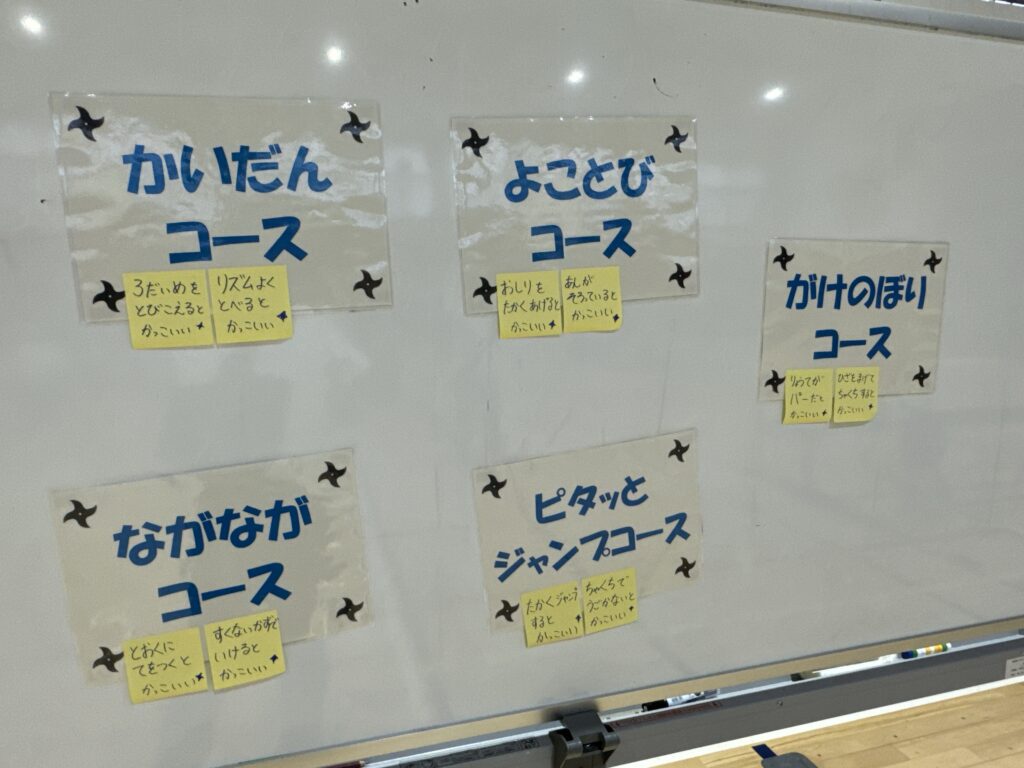 かいだん
コース
3だいめを
とびこえると
かっこいい
リズムよく
とべると
かっこいい
よことび
コース
おしりを
たかくあげると
かっこいい
あしが
そろっていると
かっこいい
がけのぼり
コース
りょうてが
パーだと
かっこいい
ひざをまげて
ちゃくちすると
かっこいい
ながなが
コース
とおくに
てをつくと
かっこいい
すくないかずで
いけると
かっこいい
ピタッと
ジャンプコース
たかくジャンプ
すると
かっこいい
ちゃくちで
うごかないと
かっこいい